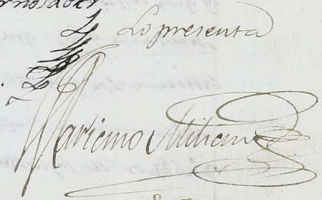 Lo presenta
Mariano Milian